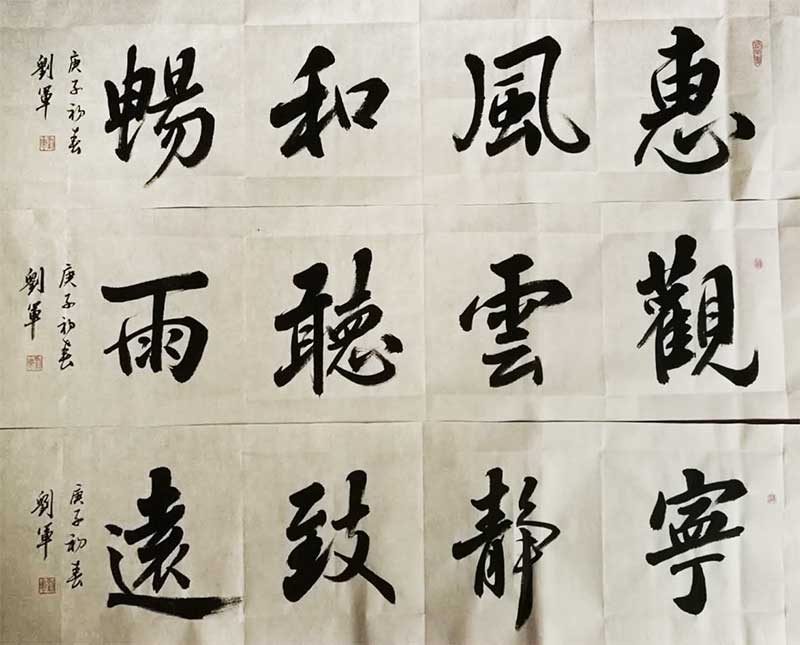 惠風和暢
庚子初春
劉軍
觀雲聽雨
庚子初春
劉軍
寧靜致遠
庚子初春
劉軍